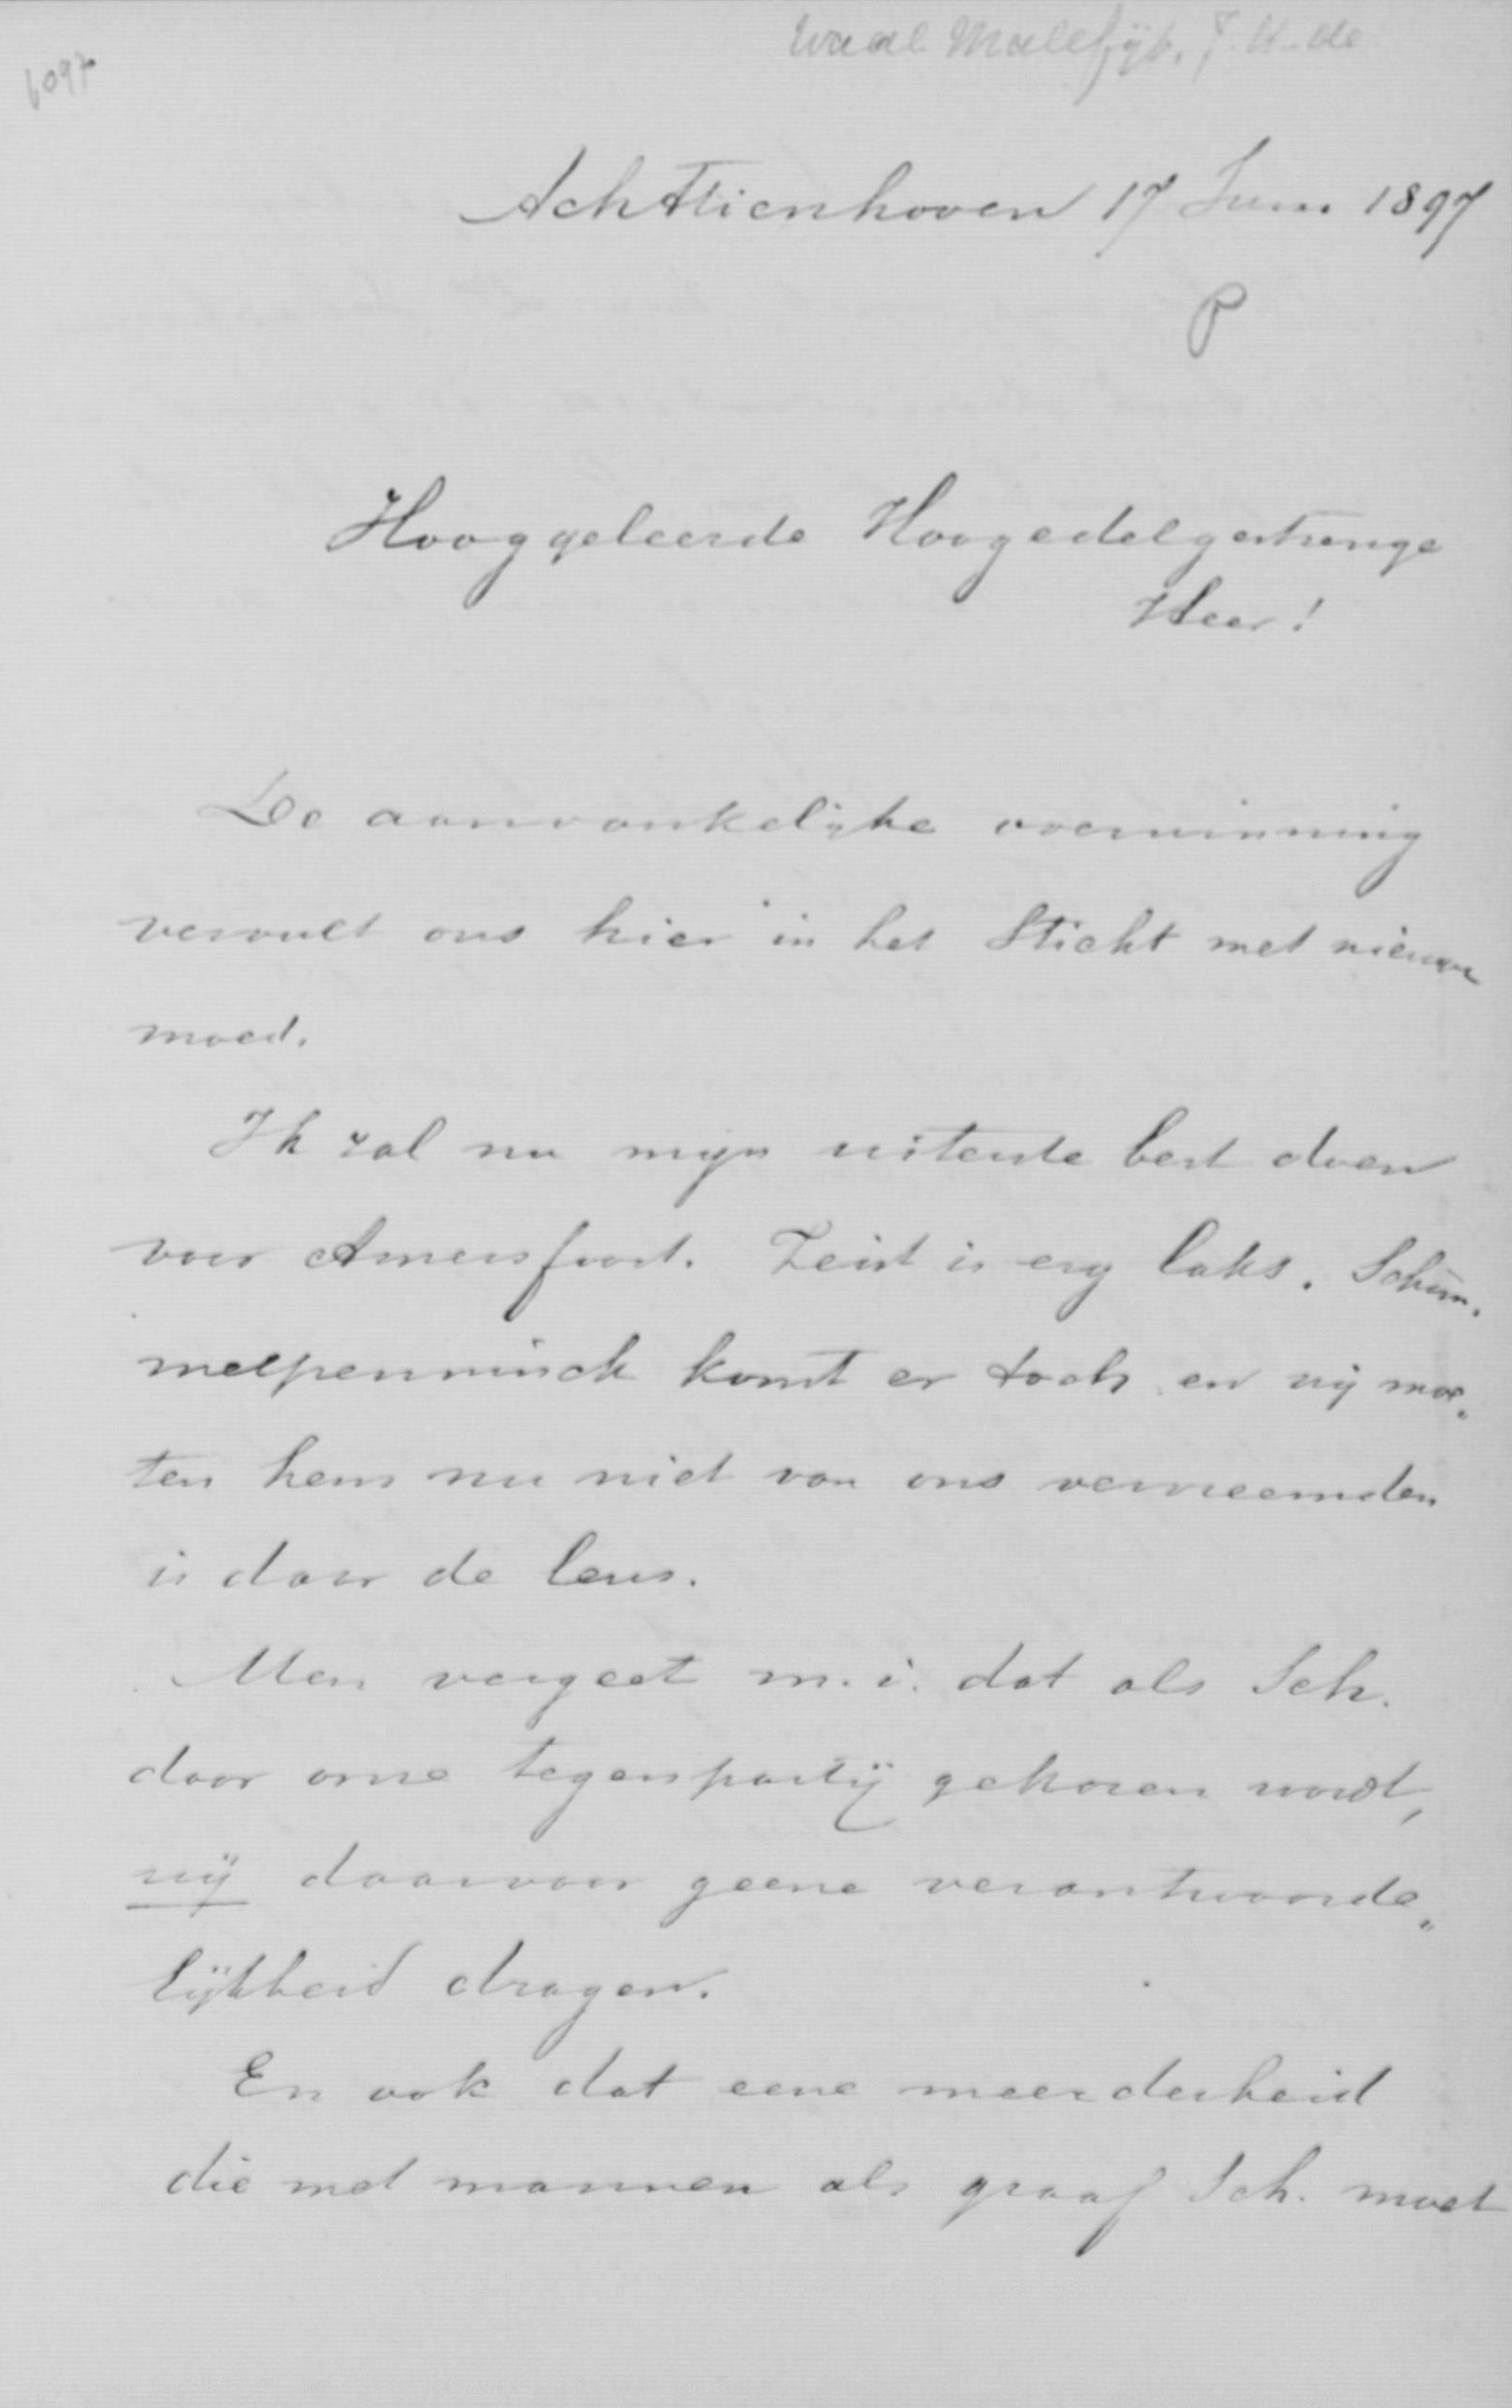 Waal Malefijt, J. H. de
6097
Achttienhoven 17 Juni 1897
P
Hooggeleerde Hoogedelgestrenge
Heer!
De aanvankelijke overwinning
vervult ons hier in het Sticht met nieuwe
moed.
Ik zal nu mijn uiterste best doen
voor Amersfoort. Zeist is erg laks. Schim„
melpenninck komt er toch en wij moe„
ten hem nu niet van ons vervreemden
is daar de leus.
Men vergeet m.i. dat als Sch.
door onze tegenpartij gekozen wordt,
wij daarvoor geene verantwoorde„
lijkheid dragen.
En ook dat eene meerderheid
die met mannen als graaf Sch. moet